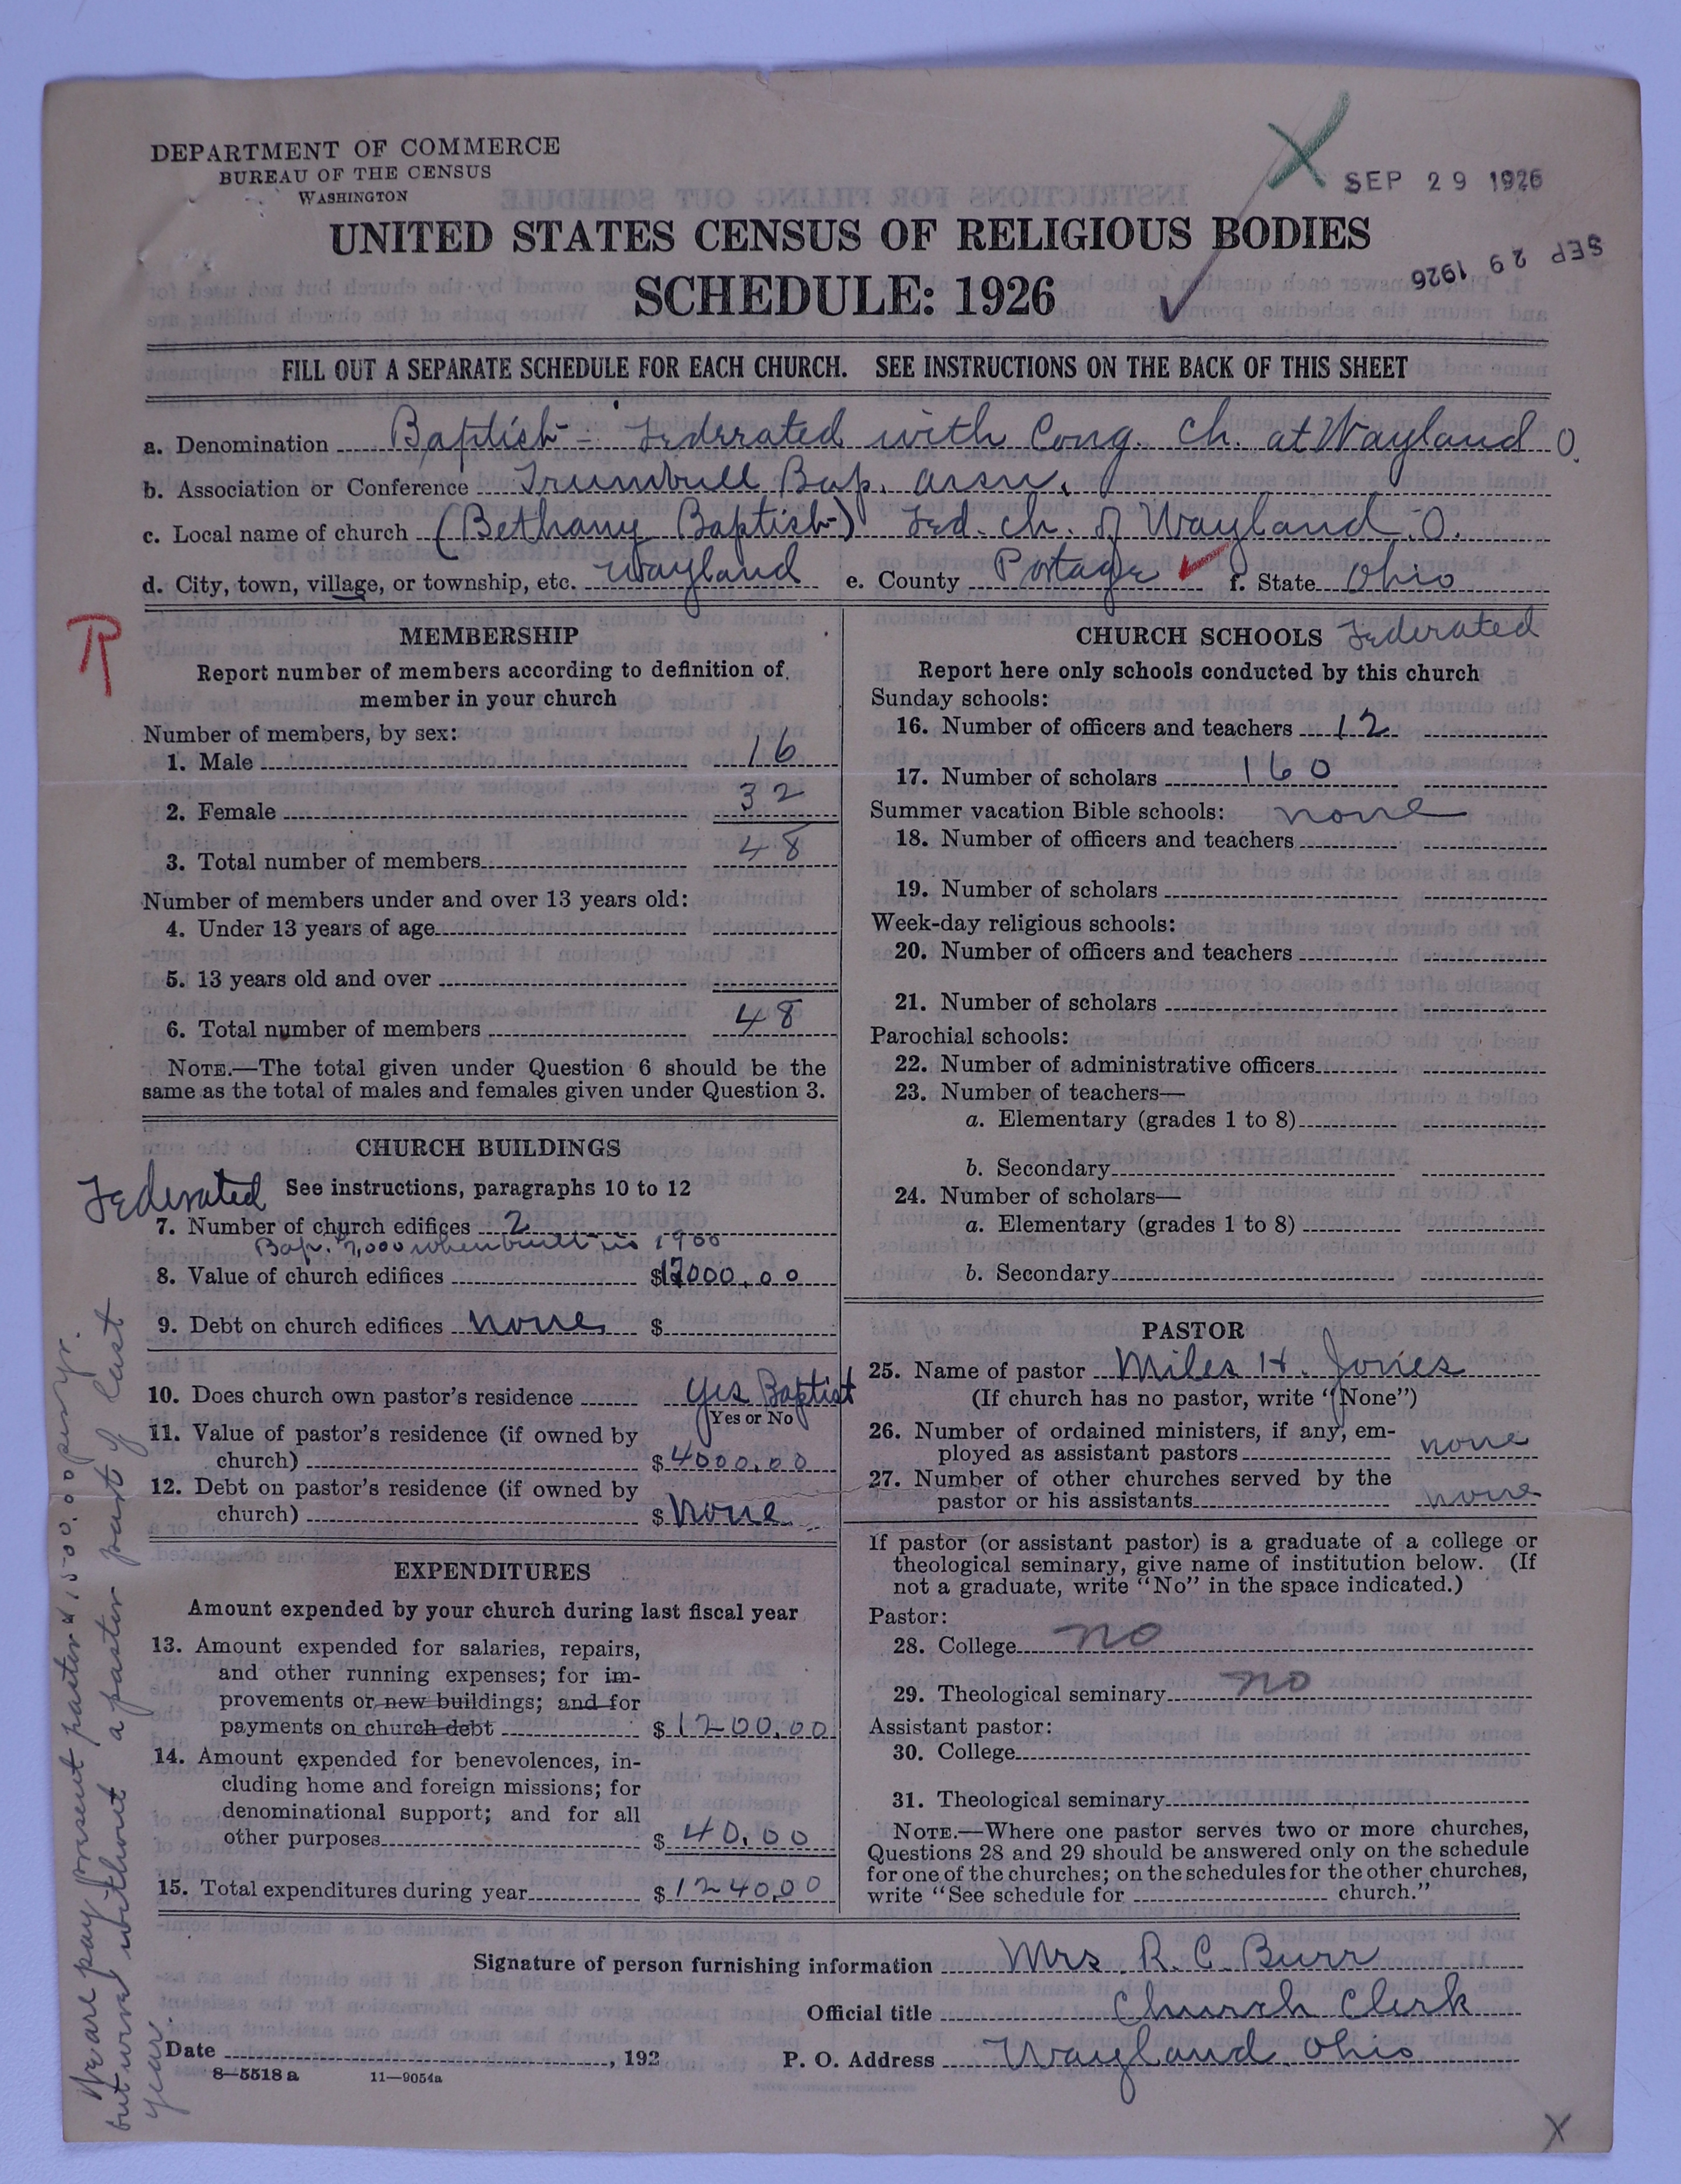 DEPARTMENT OF COMMERCE
BUREAU OF THE CENSUS
WASHINGTON
X
SEP 29 1926
SEP 29 1926
UNITED STATES CENSUS OF RELIGIOUS BODIES
SCHEDULE: 1926
FILL OUT A SEPARATE SCHEDULE FOR EACH CHURCH. SEE INSTRUCTIONS ON THE BACK OF THIS SHEET
a. Denomination Baptist - Federated with Cong. Ch. at Wayland O.
b. Association or Conference Trumbull Bap. Assn.
c. Local name of church (Bethany Baptist) Fed. Ch. of Wayland. O.
d. City, town, village, or township, etc. Wayland e. County Portage f. State Ohio
R
MEMBERSHIP
Report number of members according to definition of
member in your church
Number of members, by sex:
1. Male 16
2. Female 32
3. Total number of members 48
Number of members under and over 13 years old:
4. Under 13 years of age
5. 13 years old and over
6. Total number of members 48
NOTE.—The total given under Question 6 should be the
same as the total of males and females given under Question 3.
CHURCH BUILDINGS
Federated See instructions, paragraphs 10 to 12
7. Number of church edifices 2
Bap. 7,000 when built in 1900
8. Value of church edifices $12000.00
9. Debt on church edifices none $
10. Does church own pastor's residence Yes Baptist
Yes or No
11. Value of pastor's residence (if owned by
church) $4000.00
12. Debt on pastor's residence (if owned by
church) $ None
EXPENDITURES
Amount expended by your church during last fiscal year
13. Amount expended for salaries, repairs,
and other running expenses; for im-
provements or new buildings; and for
payments on church debt $1200.00
14. Amount expended for benevolences, in-
cluding home and foreign missions; for
denominational support; and for all
other purposes $40.00
15. Total expenditures during year $1240.00
CHURCH SCHOOLS Federated
Report here only schools conducted by this church
Sunday schools:
16. Number of officers and teachers 12
17. Number of scholars 160
Summer vacation Bible schools: none
18. Number of officers and teachers
19. Number of scholars
Week-day religious schools:
20. Number of officers and teachers
21. Number of scholars
Parochial schools:
22. Number of administrative officers
23. Number of teachers—
a. Elementary (grades 1 to 8)
b. Secondary
24. Number of scholars—
a. Elementary (grades 1 to 8)
b. Secondary
PASTOR
25. Name of pastor Miles H. Jones
(If church has no pastor, write "None")
26. Number of ordained ministers, if any, em-
ployed as assistant pastors none
27. Number of other churches served by the
pastor or his assistants none
If pastor (or assistant pastor) is a graduate of a college or
theological seminary, give name of institution below. (If
not a graduate, write "No" in the space indicated.)
Pastor:
28. College no
29. Theological seminary no
Assistant pastor:
30. College
31. Theological seminary
NOTE.—Where one pastor serves two or more churches,
Questions 28 and 29 should be answered only on the schedule
for one of the churches; on the schedules for the other churches,
write "See schedule for church."
We are pay present pastor $1500.00 per yr.
but were without a pastor part of last
year.
Signature of person furnishing information Mrs. R. C. Burr
Official title Church Clerk
Date , 192
P. O. Address Wayland Ohio
8—5518 a 11—9054a
X